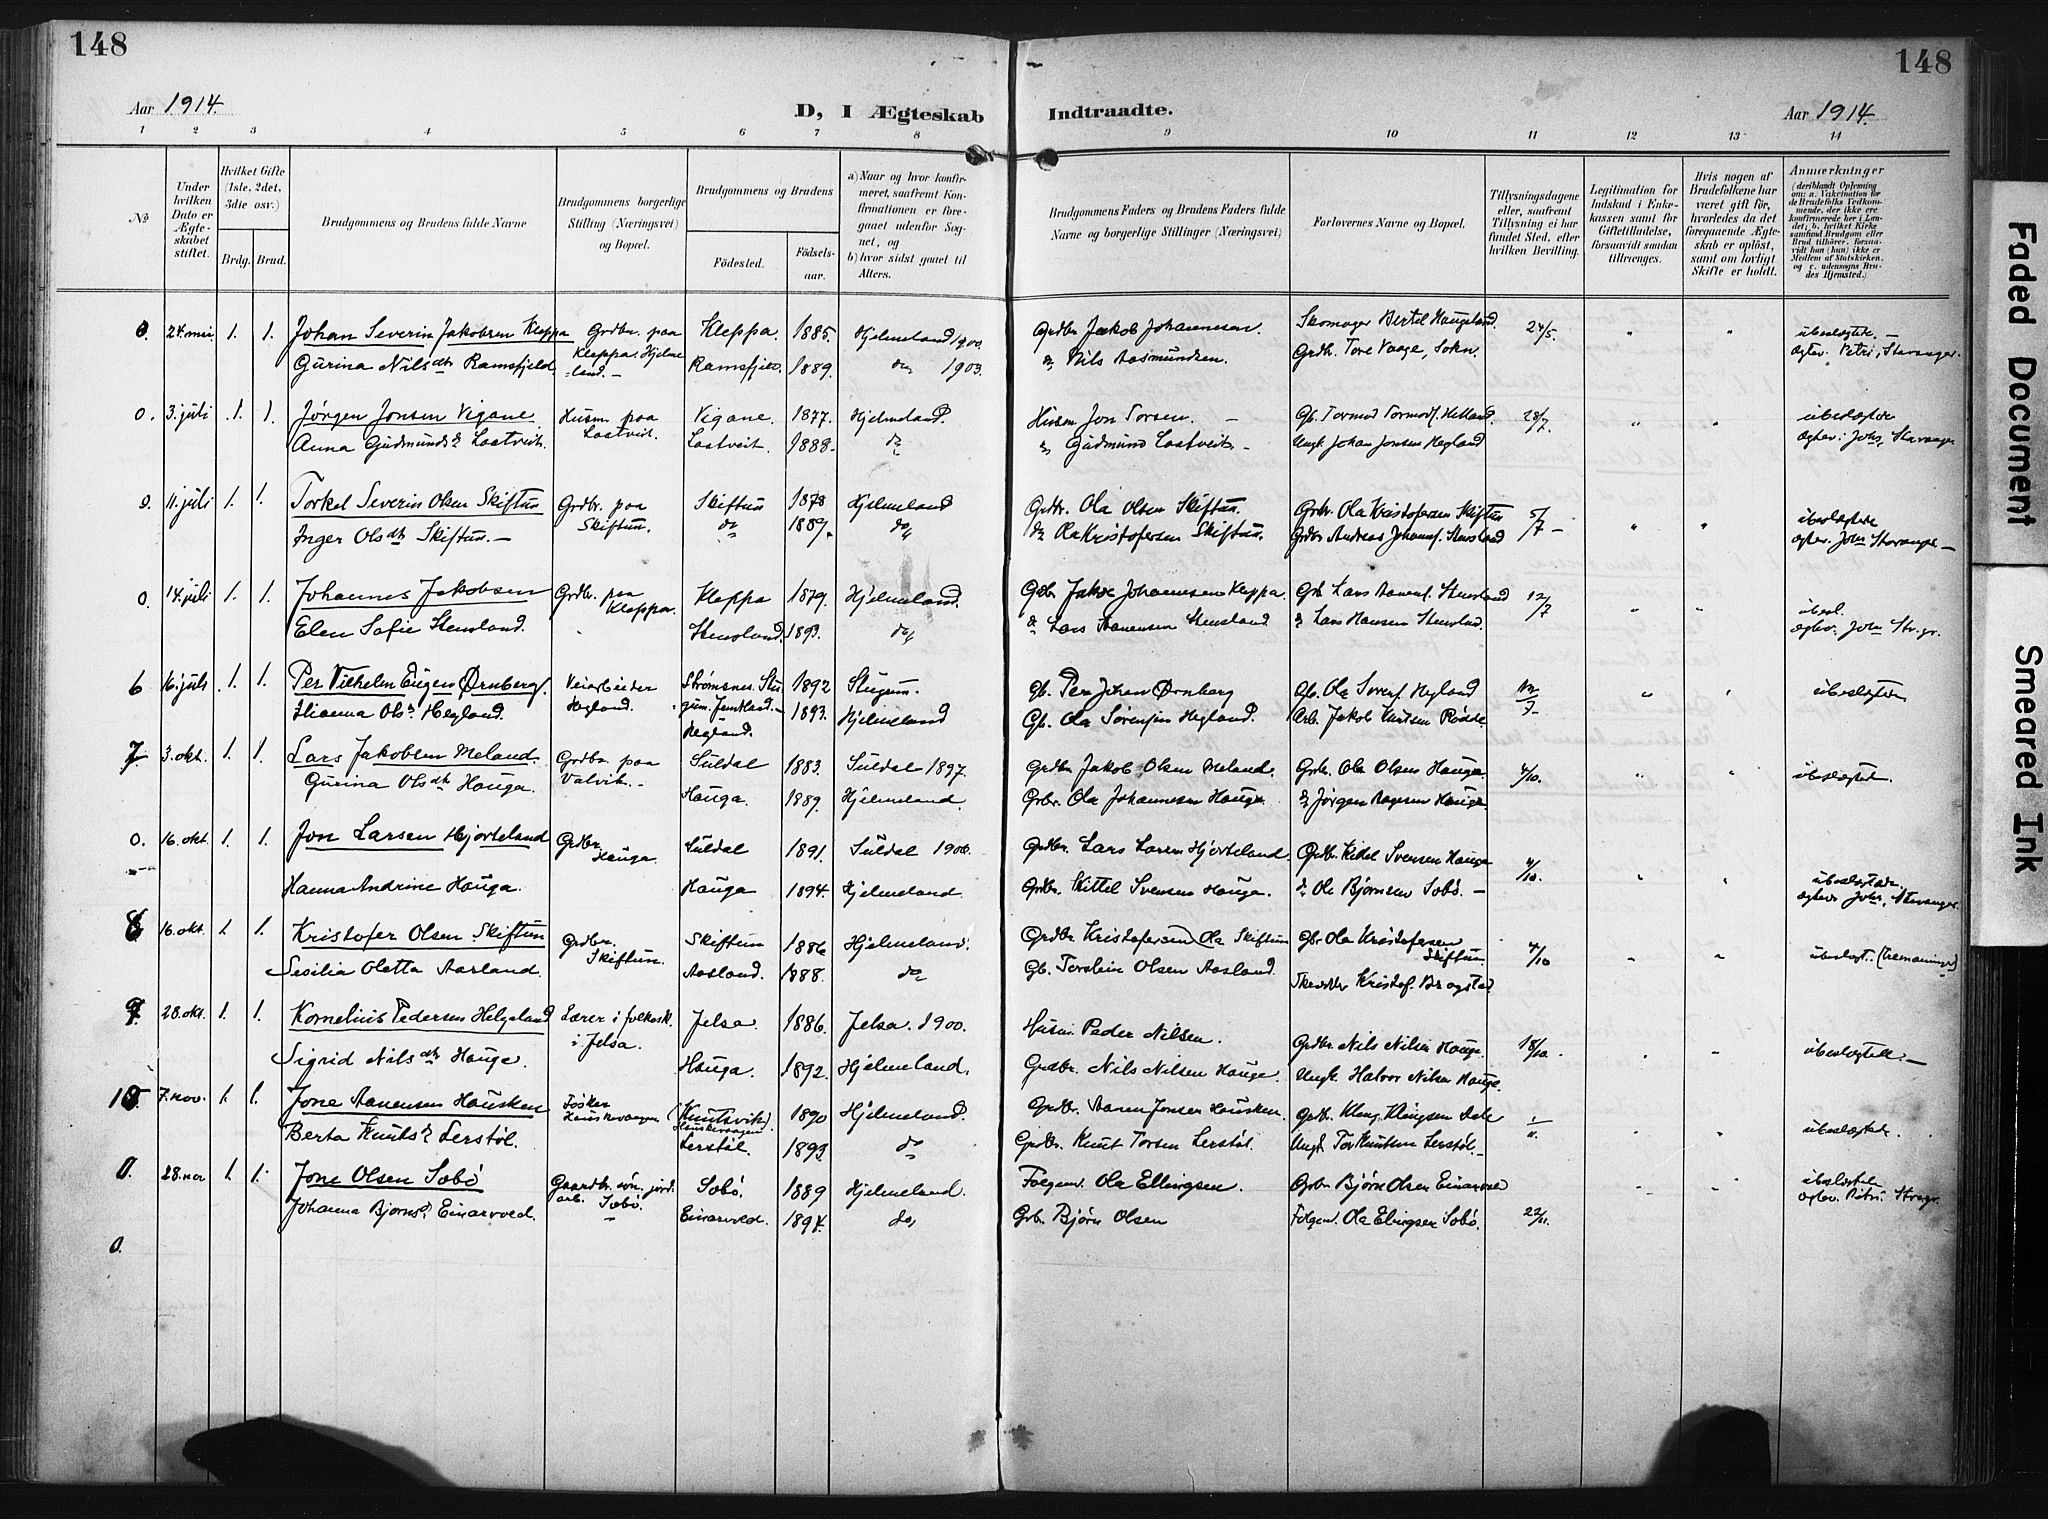 148
148
Aar 1914.
D, I Ægteskab Indtraadte.
Aar 1914.
1 2 3 4 5 6 7 8 9 10 11 12 13 14
No
Under hvilken Dato er Ægteskabet stiftet.
Hvilket Gifte (1ste, 2det, 3die osv.)
Brdg. Brud.
Brudgommens og Brudens fulde Navne
Brudgommens borgerlige Stilling (Næringsvei) og Bopæl.
Brudgommens og Brudens
Fødested.
Fødselsaar.
a) Naar og hvor konfirmeret, saafremt Konfirmationen er foregaaet udenfor Sognet, og
b) hvor sidst gaaet til Alters.
Brudgommens Faders og Brudens Faders fulde Navne og borgerlige Stillinger (Næringsvei)
Forlovernes Navne og Bopæl.
Tillysningsdagene eller, saafremt Tillysning ei har fundet Sted, efter hvilken Bevilling.
Legitimation for Indskud i Enkekassen samt for Giftetilladelse, forsaavidt saadan tiltrænges.
Hvis nogen af Brudefolkene har været gift før, hvorledes da det foregaaende Ægteskab er opløst, samt om lovligt Skifte er holdt.
Anmærkninger
(deriblandt Oplysning om: a. Vakcination for de Brudefolks Vedkommende, der ikke ere konfirmerede her i Landet; b. hvilket Kirkesamfund Brudgom eller Brud tilhører, forsaavidt han (hun) ikke er Medlem af Statskirken, og c. udensogns Brudes Hjemsted.)
0. 24. mai. 1. 1. Johan Severin Jakobsen Kleppa Grdbr. paa Kleppa, Hjelmeland. Kleppa. 1885. Hjelmeland 1900. Grdbr Jakob Johannesen. Skomager Bertel Haugeland. 24/5. " " ubeslægtede. –
Gurina Nilsdtr Ramsfjeld. Ramsfjeld. 1889. do 1903. " Nils Aasmundsen. Grdbr. Tore Vaage, Sokn. ægtev. Petri, Stavanger.
0. 3. juli 1. 1. Jørgen Jonsen Vigane. Husm. paa Lastveit. Vigane. 1877. Hjelmeland. Husm Jon Torsen. Gb. Tormod Tormods. Hetland. 28/7. " " ubeslægtede
Anna Gudmundsdr Lastveit. Lastveit. 1888. do " Gudmund Lastveit Ungk. Johan Jonsen Hegland ægtev. i Johs, Stavanger
0. 11. juli 1. 1. Torkel Severin Olsen Skiftun Grdbr. paa Skiftun. Skiftun 1878 Hjelmeland Grdbr. Ola Olsen Skiftun. Grdbr. Ola Kristofersen Skiftun 5/7 – " " ubeslægtede
Inger Olsdtr Skiftun. – do 1889. do, do Ola Kristofersen Skiftun. Grdbr Andreas Johannes. Stensland ægtev. Johs Stavanger –
0. 14. juli 1. 1. Johannes Jakobsen Grdbr. paa Kleppa. Kleppa 1879. Hjelmeland. Gdbr. Jakob Johannesen Kleppa. Grb Lars Aanens. Stensland 12/7 " " ubesl.
Elen Sofie Stensland. Stensland. 1893. do, " Lars Aanensen Stensland. " Lars Hansen Stensland. ægtev. Johs Stv.gr.
6 16. juli 1. 1. Per Vilhelm Eugen Ørnberg. Veiarbeider Hegland. Strømsnes. Stugum. Jemtland. – 1892 Stugum. Gb. Per Johan Ørnberg Gb. Ola Sørens. Hegland 12/7 " " ubeslægtede
Hanna Olsdr Hegland. Hegland. 1893. Hjelmeland Gb. Ola Sørensen Hegland. Arb. Jakob Knutsen Rødde
7. 3. okt. 1. 1. Lars Jakobsen Meland. Grdbr. paa Valvik. Suldal 1883. Suldal 1897. Grdbr Jakob Olsen Meland. Grbr. Ola Olsen Hauga. 4/10. " " ubeslægtet.
Gurina Olsdtr Hauga. Hauga. 1889. Hjelmeland. Grbr. Ola Johannesen Hauga. " Jørgen Aagesen Hauga.
0. 16. okt. 1. 1. Jon Larsen Hjorteland Grdbr. Hauga. Suldal 1891. Suldal 1906. Grdbr. Lars Larsen Hjorteland. Grdbr. Kitel Svensen Hauga 4/10. " " ubeslægtede.
Hanna Andrine Hauga. Hauga 1894. Hjelmeland. Grdbr. Kittel Svensen Hauga. " Ola Bjørnsen Sobø. – ægtev. Johs, Stavanger
8 16. okt. 1. 1. Kristofer Olsen Skiftun Grdbr. Skiftun. Skiftun 1886 Hjelmeland. Grdbr Kristofersen, Ola Skiftun Gbr Ola Kristofersen Skiftun. 4/10 " " ubeslægt.
Sesilia Oletta Aasland. Aasland. 1888. do Gb. Torstein Olsen Aasland. Kristof. Bragstad
9. 28. okt. 1. 1. Kornelius Pedersen Helgeland Lærer i folkesk. i Jelsa. Jelsa. 1886. Jelsa. 1900. Husm. Peder Nilsen. Grdbr. Nils Nilsen Hauge. 18/10. " " ubeslægtede. –
Sigrid Nilsdtr Hauge. Hauga. 1892. Hjelmeland. Grdbr. Nils Nilsen Hauge. Ungk. Halvor Nilsen Hauge.
10. 7. nov. 1. 1. Jone Aanensen Hausken Fisker Hauskevaagen (Knutsvik) Hauskevaagen 1890 Hjelmeland. Grdbr. Aanen Jonsen Hausken. Grdbr. Klaug Klaugsen Dale 1/11. " " ubeslægtede.
Berta Knutsdr Lerstøl. Lerstøl. 1893. do Grdbr. Knut Torsen Lerstøl. Ungk. Tor Knutsen Lerstøl. –
0. 28. nov 1. 1. Jone Olsen Sobø Gaardbr. søn. jord arb. Sobø. Sobø. 1889 Hjelmeland. Folgem. Ola Ellingsen. Grbr. Bjørn Olsen Einarvoll 22/11. " " ubeslægtede
Johanna Bjørnsdr Einarvoll. Einarvoll. 1894. do, Grb. Bjørn Olsen Folgem. Ola Elingsen Sobø. ægtev. Petri Stvgr.
0.
Faded Document
Smeared Ink